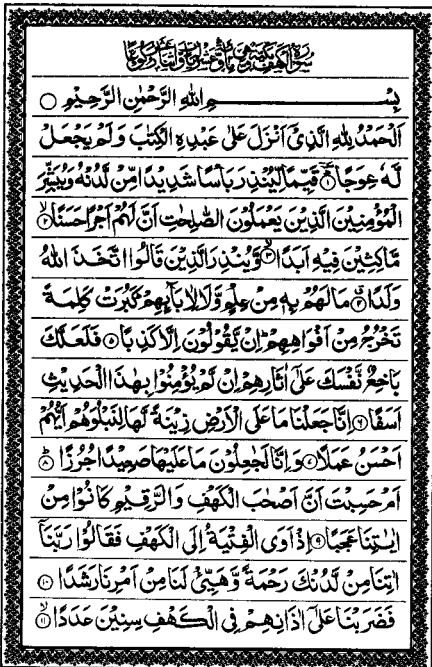 سُوْرَةُ الْكَهْفِ مَكِّيَّةٌ وَّهِيَ مِائَةٌ وَّعَشْرُ اٰيَاتٍ وَّاثْنَا عَشَرَ رُكُوْعًا
بِسْمِ اللهِ الرَّحْمٰنِ الرَّحِيْمِ ○
اَلْحَمْدُ لِلّٰهِ الَّذِيْٓ اَنْزَلَ عَلٰى عَبْدِهِ الْكِتٰبَ وَلَمْ يَجْعَلْ
لَّهٗ عِوَجًا ۝۱ قَيِّمًا لِّيُنْذِرَ بَاْسًا شَدِيْدًا مِّنْ لَّدُنْهُ وَيُبَشِّرَ
الْمُؤْمِنِيْنَ الَّذِيْنَ يَعْمَلُوْنَ الصّٰلِحٰتِ اَنَّ لَهُمْ اَجْرًا حَسَنًا ۝۲
مَّاكِثِيْنَ فِيْهِ اَبَدًا ۝۳ وَّيُنْذِرَ الَّذِيْنَ قَالُوا اتَّخَذَ اللهُ
وَلَدًا ۝۴ مَا لَهُمْ بِهٖ مِنْ عِلْمٍ وَّلَا لِاٰبَآئِهِمْ كَبُرَتْ كَلِمَةً
تَخْرُجُ مِنْ اَفْوَاهِهِمْ اِنْ يَّقُوْلُوْنَ اِلَّا كَذِبًا ۝۵ فَلَعَلَّكَ
بَاخِعٌ نَّفْسَكَ عَلٰٓى اٰثَارِهِمْ اِنْ لَّمْ يُؤْمِنُوْا بِهٰذَا الْحَدِيْثِ
اَسَفًا ۝۶ اِنَّا جَعَلْنَا مَا عَلَى الْاَرْضِ زِيْنَةً لَّهَا لِنَبْلُوَهُمْ اَيُّهُمْ
اَحْسَنُ عَمَلًا ۝۷ وَاِنَّا لَجٰعِلُوْنَ مَا عَلَيْهَا صَعِيْدًا جُرُزًا ۝۸
اَمْ حَسِبْتَ اَنَّ اَصْحٰبَ الْكَهْفِ وَالرَّقِيْمِ كَانُوْا مِنْ
اٰيٰتِنَا عَجَبًا ۝۹ اِذْ اَوَى الْفِتْيَةُ اِلَى الْكَهْفِ فَقَالُوْا رَبَّنَآ
اٰتِنَا مِنْ لَّدُنْكَ رَحْمَةً وَّهَيِّئْ لَنَا مِنْ اَمْرِنَا رَشَدًا ۝۱۰
فَضَرَبْنَا عَلٰٓى اٰذَانِهِمْ فِي الْكَهْفِ سِنِيْنَ عَدَدًا ۝۱۱